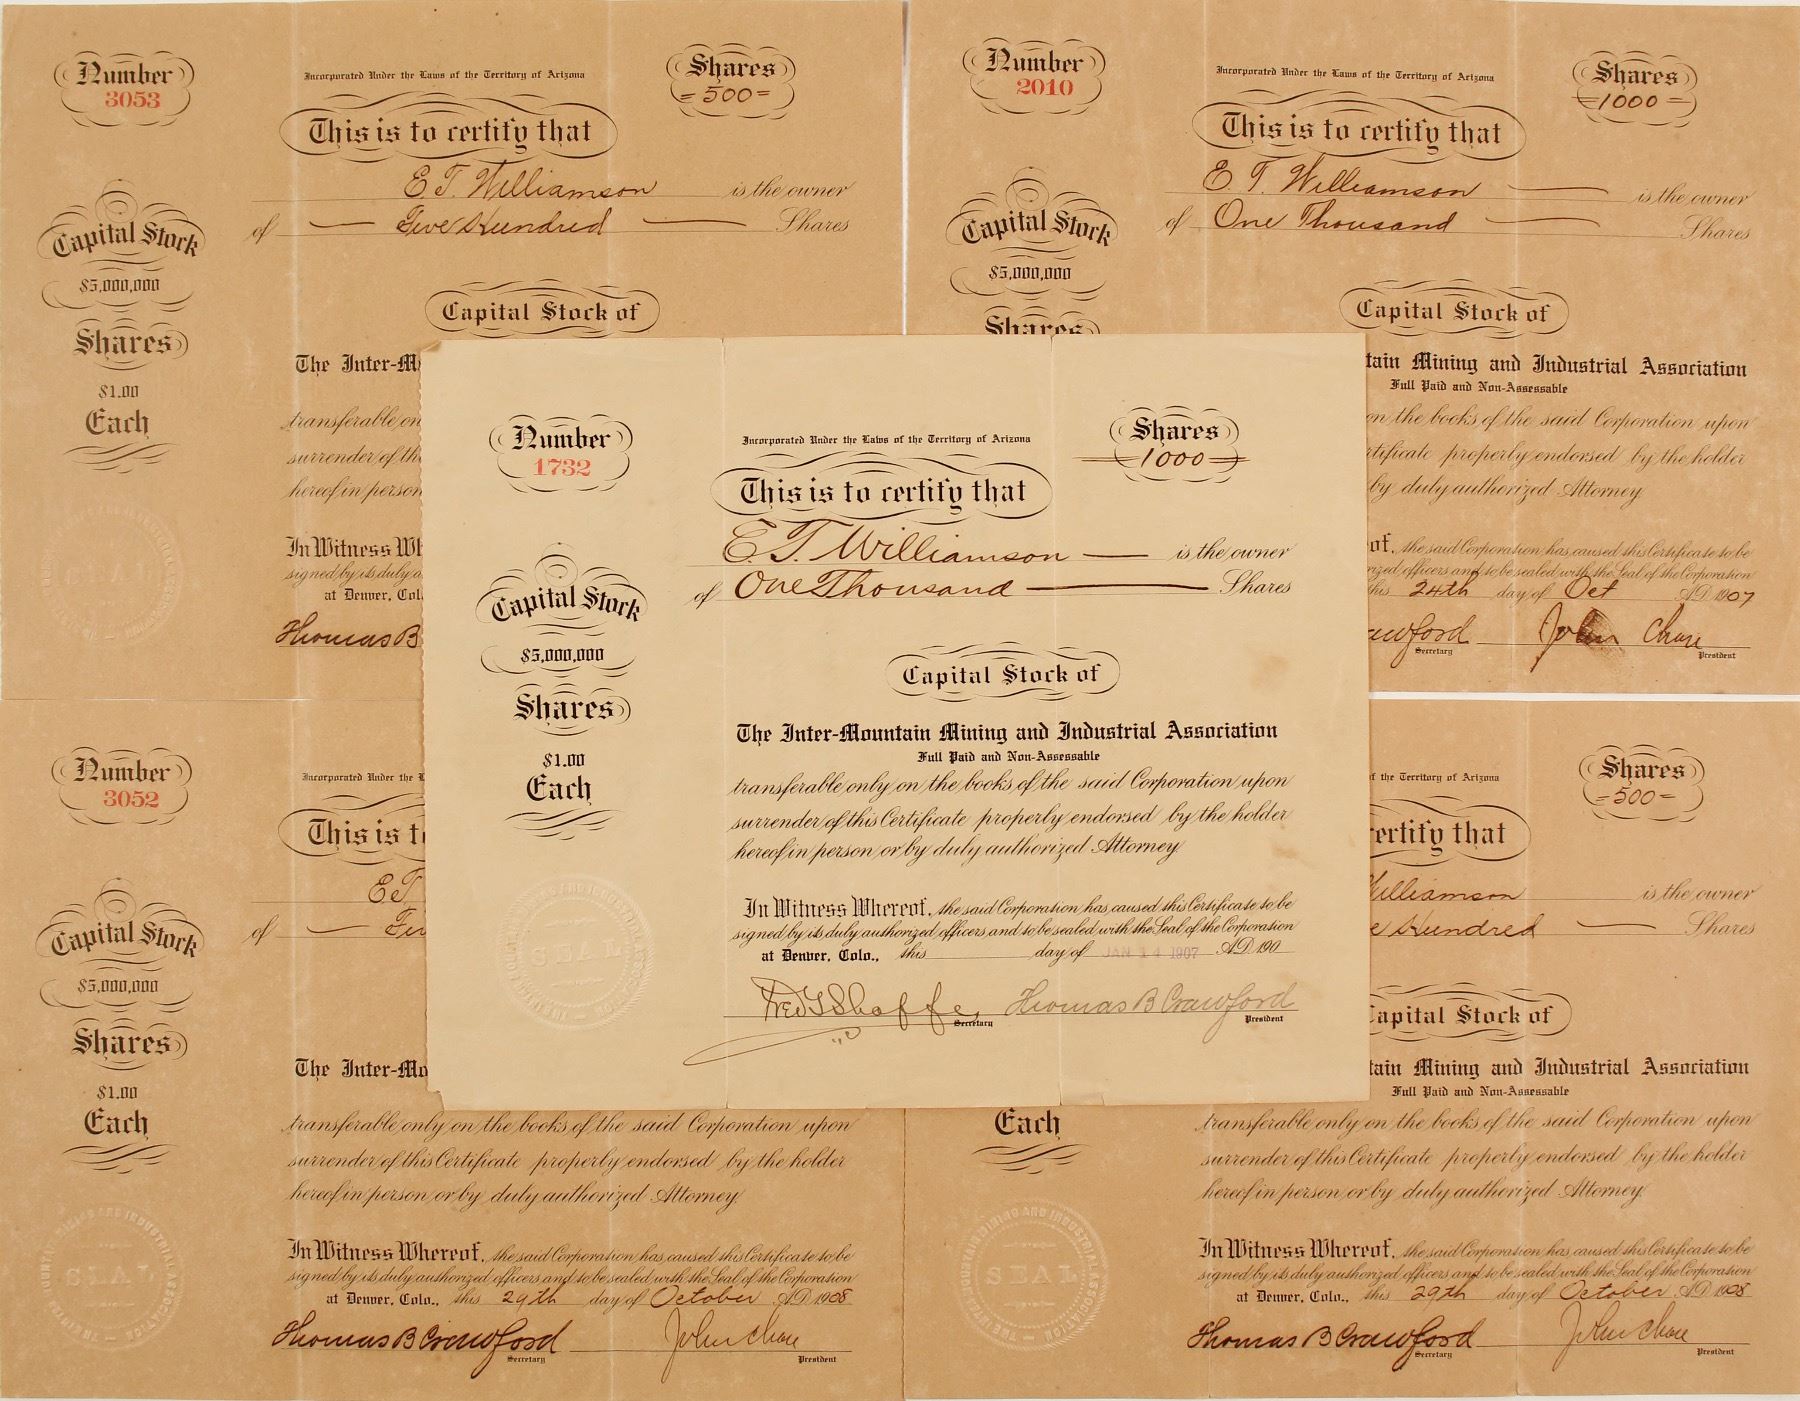 Number
3053
Incorporated Under the Laws of the Territory of Arizona
Shares
=500=
This is to certify that
E.T. Williamson is the owner
of Five Hundred Shares
Capital Stock
$5,000,000
Shares
$1.00
Each
Capital Stock of
The Inter-M
transferable on
surrender of th
hereof in person
In Witness Wh
signed by its duly a
at Denver, Col
Thomas B
Number
2010
Incorporated Under the Laws of the Territory of Arizona
Shares
=1000=
This is to certify that
E.T. Williamson is the owner
of One Thousand Shares
Capital Stock
$5,000,000
Shares
Capital Stock of
tain Mining and Industrial Association
Full Paid and Non-Assessable
on the books of the said Corporation upon
rtificate properly endorsed by the holder
by duly authorized Attorney
of, the said Corporation has caused this Certificate to be
rized officers and to be sealed with the Seal of the Corporation
this 24th day of Oct A.D. 1907
awford John Chase
Secretary President
Number
1732
Incorporated Under the Laws of the Territory of Arizona
Shares
1000
This is to certify that
E.T. Williamson is the owner
of One Thousand Shares
Capital Stock
$5,000,000
Shares
$1.00
Each
Capital Stock of
The Inter-Mountain Mining and Industrial Association
Full Paid and Non-Assessable
transferable only on the books of the said Corporation upon
surrender of this Certificate properly endorsed by the holder
hereof in person or by duly authorized Attorney
In Witness Whereof, the said Corporation has caused this Certificate to be
signed by its duly authorized officers and to be sealed with the Seal of the Corporation
at Denver, Colo., this day of JAN 14 1907 A.D. 190
SEAL
Thomas B Crawford
Secretary President
Number
3052
Incorporated Under the
This is t
E T
of Fiv
Capital Stock
$5,000,000
Shares
$1.00
Each
The Inter-Mo
transferable only on the books of the said Corporation upon
surrender of this Certificate properly endorsed by the holder
hereof in person or by duly authorized Attorney.
In Witness Whereof, the said Corporation has caused this Certificate to be
signed by its duly authorized officers and to be sealed with the Seal of the Corporation
at Denver, Colo., this 29th day of October A.D. 1908
SEAL
Thomas B Crawford John Chase
Secretary President
of the Territory of Arizona
Shares
=500=
ertify that
illiamson is the owner
e Hundred Shares
apital Stock of
tain Mining and Industrial Association
Full Paid and Non-Assessable
Each
transferable only on the books of the said Corporation upon
surrender of this Certificate properly endorsed by the holder
hereof in person or by duly authorized Attorney.
In Witness Whereof, the said Corporation has caused this Certificate to be
signed by its duly authorized officers and to be sealed with the Seal of the Corporation
at Denver, Colo., this 29th day of October A.D. 1908
SEAL
Thomas B Crawford John Chase
Secretary President